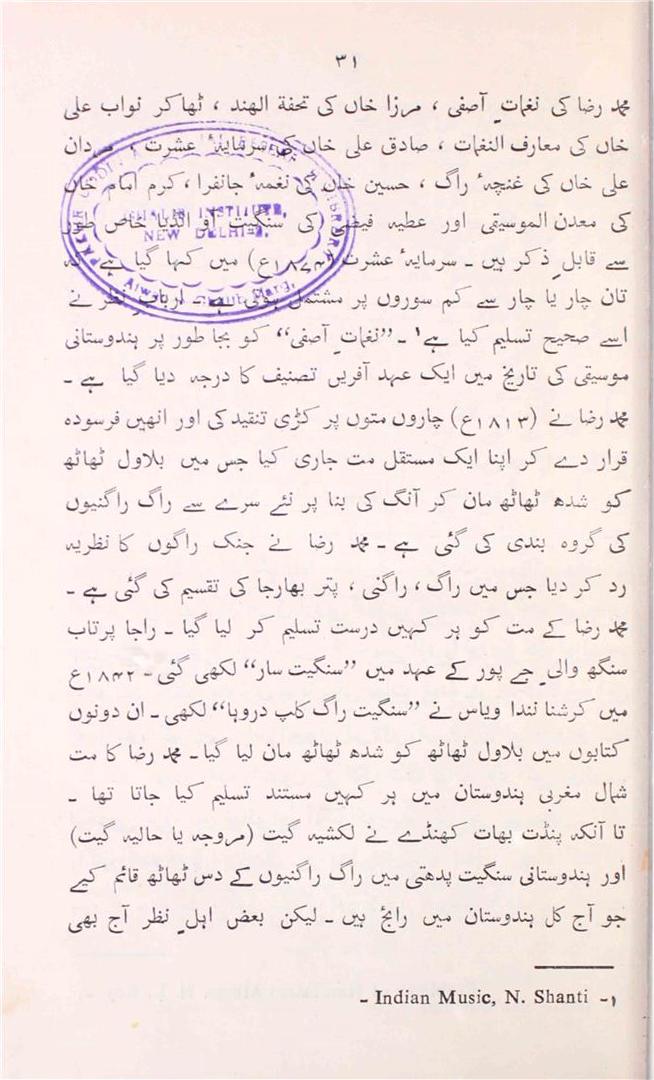 ۳۱
محمد رضا کی نغمات ِ آصفی ، مرزا خاں کی تحفة الهند ، ٹھاکر نواب علی
خاں کی معارف النغمات ، صادق علی خاں کی سرمایۂ عشرت ، مردان
علی خاں کی غنچۂ راگ ، حسین خاں کی نغمۂ جانفرا ، کرم امام خاں
کی معدن الموسیقی اور عطیہ فیضی کی سنگیت آو انڈیا خاص طور
سے قابل ِ ذکر ہیں ۔ سرمایۂ عشرت (۱۸۷۴ع) میں کہا گیا ہے کہ
تان چار یا چار سے کم سوروں پر مشتمل ہوتی ہے ۔ ارباب ِ نظر نے
اسے صحیح تسلیم کیا ہے۱ ۔ ”نغمات ِ آصفی“ کو بجا طور پر ہندوستانی
موسیقی کی تاریخ میں ایک عہد آفریں تصنیف کا درجہ دیا گیا ہے ۔
محمد رضا نے (۱۸۱۳ع) چاروں متوں پر کڑی تنقید کی اور انھیں فرسودہ
قرار دے کر اپنا ایک مستقل مت جاری کیا جس میں بلاول ٹھاٹھ
کو شدھ ٹھاٹھ مان کر آنگ کی بنا پر نئے سرے سے راگ راگنیوں
کی گروہ بندی کی گئی ہے ۔ محمد رضا نے جنک راگوں کا نظریہ
رد کر دیا جس میں راگ ، راگنی ، پتر بھارجا کی تقسیم کی گئی ہے ۔
محمد رضا کے مت کو ہر کہیں درست تسلیم کر لیا گیا ۔ راجا پرتاب
سنگھ والی ِ جے پور کے عہد میں ”سنگیت سار“ لکھی گئی ۔ ۱۸۴۲ع
میں کرشنا نندا ویاس نے ”سنگیت راگ کلپ دروہا“ لکھی ۔ ان دونوں
کتابوں میں بلاول ٹھاٹھ کو شدھ ٹھاٹھ مان لیا گیا ۔ محمد رضا کا مت
شمال مغربی ہندوستان میں ہر کہیں مستند تسلیم کیا جاتا تھا ۔
تا آنکہ پنڈت بھات کھنڈے نے لکشیہ گیت (مروجہ یا حالیہ گیت)
اور ہندوستانی سنگیت پدھتی میں راگ راگنیوں کے دس ٹھاٹھ قائم کیے
جو آج کل ہندوستان میں رائج ہیں ۔ لیکن بعض اہل ِ نظر آج بھی
۱- Indian Music, N. Shanti -
INSTITUTE,
NEW DELHI
Marg,